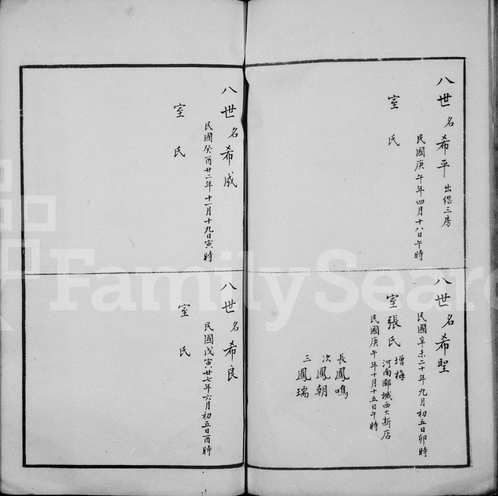 八世 名 希平 出繼三房
民國庚午年四月十六日午時
室 氏
八世 名 希聖
民國辛未二十年九月初五日卯時
室 張氏 增梅
河南郾城西大新店
民國庚午年十月十五日午時
長鳳鳴
次鳳朝
三鳳瑞
八世 名 希成
民國癸酉廿二年十一月十九日寅時
室 氏
八世 名 希良
民國戊寅廿七年六月初五日酉時
室 氏
FamilySearch